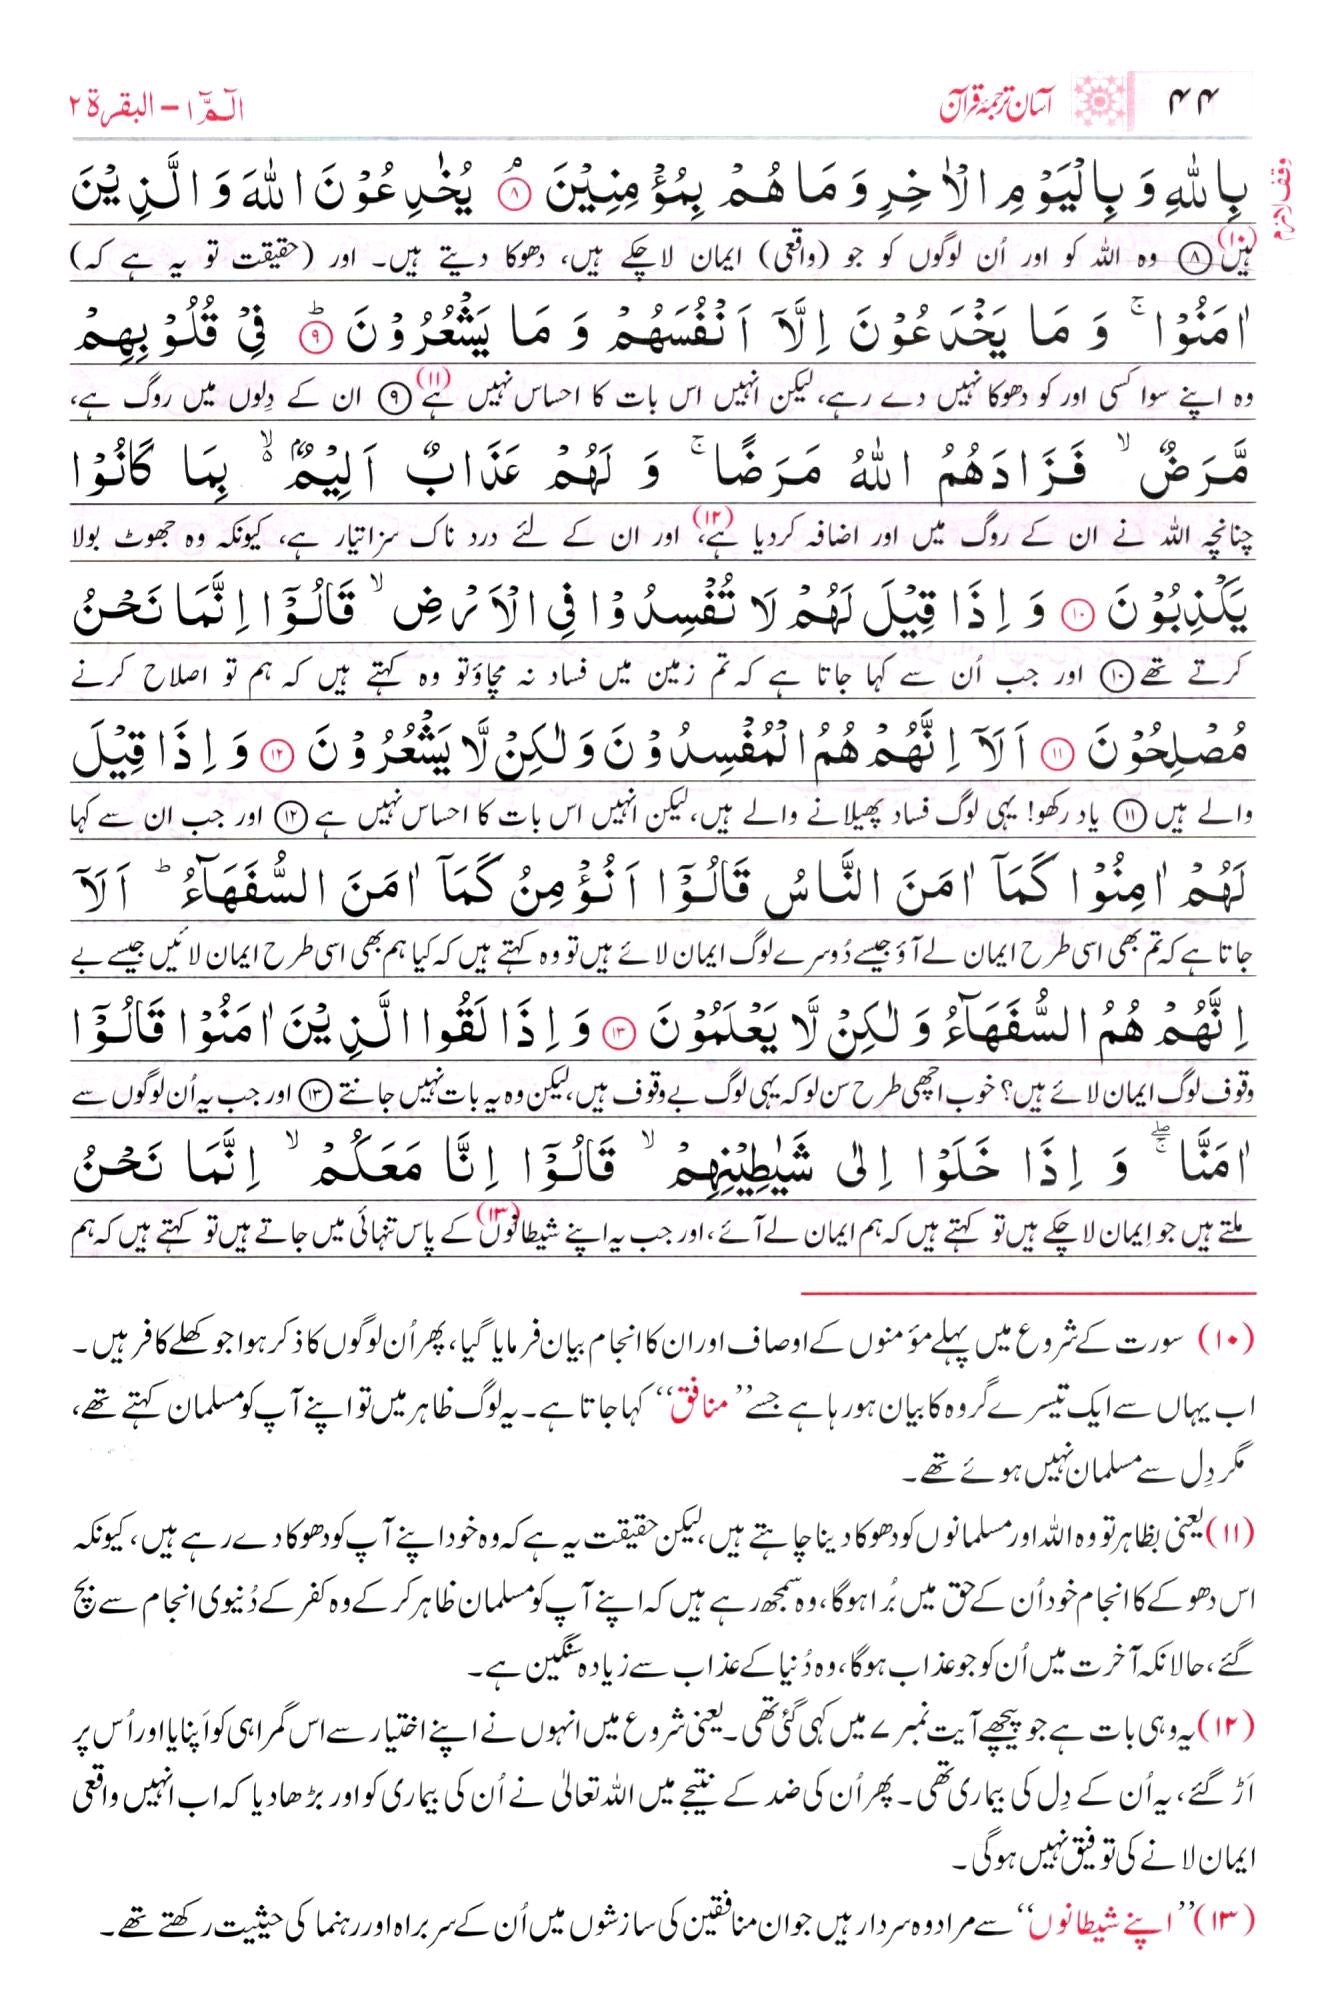 ۴۴
آسان ترجمۂ قرآن
الٓمّٓ ۱ – البقرۃ ۲
وقف لازم
بِاللّٰهِ وَ بِالْیَوْمِ الْاٰخِرِ وَ مَا هُمْ بِمُؤْمِنِیْنَ ۘ ﴿۸﴾ یُخٰدِعُوْنَ اللّٰهَ وَ الَّذِیْنَ
ہیں(۱۰) ﴿۸﴾ وہ اللہ کو اور اُن لوگوں کو جو (واقعی) ایمان لاچکے ہیں، دھوکا دیتے ہیں۔ اور (حقیقت تو یہ ہے کہ)
اٰمَنُوْا ۚ وَ مَا یَخْدَعُوْنَ اِلَّاۤ اَنْفُسَهُمْ وَ مَا یَشْعُرُوْنَ ؕ ﴿۹﴾ فِیْ قُلُوْبِهِمْ
وہ اپنے سوا کسی اور کو دھوکا نہیں دے رہے، لیکن انہیں اس بات کا احساس نہیں ہے(۱۱) ﴿۹﴾ ان کے دِلوں میں روگ ہے،
مَّرَضٌ ۙ فَزَادَهُمُ اللّٰهُ مَرَضًا ۚ وَ لَهُمْ عَذَابٌ اَلِیْمٌۢ ۙ۬ بِمَا كَانُوْا
چنانچہ اللہ نے ان کے روگ میں اور اضافہ کردیا ہے،(۱۲) اور ان کے لئے درد ناک سزا تیار ہے، کیونکہ وہ جھوٹ بولا
یَكْذِبُوْنَ ﴿۱۰﴾ وَ اِذَا قِیْلَ لَهُمْ لَا تُفْسِدُوْا فِی الْاَرْضِ ۙ قَالُوْۤا اِنَّمَا نَحْنُ
کرتے تھے ﴿۱۰﴾ اور جب اُن سے کہا جاتا ہے کہ تم زمین میں فساد نہ مچاؤ تو وہ کہتے ہیں کہ ہم تو اصلاح کرنے
مُصْلِحُوْنَ ﴿۱۱﴾ اَلَاۤ اِنَّهُمْ هُمُ الْمُفْسِدُوْنَ وَ لٰكِنْ لَّا یَشْعُرُوْنَ ﴿۱۲﴾ وَ اِذَا قِیْلَ
والے ہیں ﴿۱۱﴾ یاد رکھو! یہی لوگ فساد پھیلانے والے ہیں، لیکن انہیں اس بات کا احساس نہیں ہے ﴿۱۲﴾ اور جب ان سے کہا
لَهُمْ اٰمِنُوْا كَمَاۤ اٰمَنَ النَّاسُ قَالُوْۤا اَنُؤْمِنُ كَمَاۤ اٰمَنَ السُّفَهَآءُ ؕ اَلَاۤ
جاتا ہے کہ تم بھی اسی طرح ایمان لے آؤ جیسے دُوسرے لوگ ایمان لائے ہیں تو وہ کہتے ہیں کہ کیا ہم بھی اسی طرح ایمان لائیں جیسے بے
اِنَّهُمْ هُمُ السُّفَهَآءُ وَ لٰكِنْ لَّا یَعْلَمُوْنَ ﴿۱۳﴾ وَ اِذَا لَقُوا الَّذِیْنَ اٰمَنُوْا قَالُوْۤا
وقوف لوگ ایمان لائے ہیں؟ خوب اچھی طرح سن لو کہ یہی لوگ بے وقوف ہیں، لیکن وہ یہ بات نہیں جانتے ﴿۱۳﴾ اور جب یہ اُن لوگوں سے
اٰمَنَّا ۖۚ وَ اِذَا خَلَوْا اِلٰی شَیٰطِیْنِهِمْ ۙ قَالُوْۤا اِنَّا مَعَكُمْ ۙ اِنَّمَا نَحْنُ
ملتے ہیں جو اِیمان لا چکے ہیں تو کہتے ہیں کہ ہم ایمان لے آئے، اور جب یہ اپنے شیطانوں(۱۳) کے پاس تنہائی میں جاتے ہیں تو کہتے ہیں کہ ہم
(۱۰) سورت کے شروع میں پہلے مؤمنوں کے اوصاف اور ان کا انجام بیان فرمایا گیا، پھر اُن لوگوں کا ذکر ہوا جو کھلے کافر ہیں۔
اب یہاں سے ایک تیسرے گروہ کا بیان ہورہا ہے جسے ’’منافق‘‘ کہا جاتا ہے۔ یہ لوگ ظاہر میں تو اپنے آپ کو مسلمان کہتے تھے،
مگر دِل سے مسلمان نہیں ہوئے تھے۔
(۱۱) یعنی بظاہر تو وہ اللہ اور مسلمانوں کو دھوکا دینا چاہتے ہیں، لیکن حقیقت یہ ہے کہ وہ خود اپنے آپ کو دھوکا دے رہے ہیں، کیونکہ
اس دھوکے کا انجام خود اُن کے حق میں بُرا ہوگا، وہ سمجھ رہے ہیں کہ اپنے آپ کو مسلمان ظاہر کرکے وہ کفر کے دُنیوی انجام سے بچ
گئے، حالانکہ آخرت میں اُن کو جو عذاب ہوگا، وہ دُنیا کے عذاب سے زیادہ سنگین ہے۔
(۱۲) یہ وہی بات ہے جو پیچھے آیت نمبر ۷ میں کہی گئی تھی۔ یعنی شروع میں انہوں نے اپنے اختیار سے اس گمراہی کو اَپنایا اور اُس پر
اَڑ گئے، یہ اُن کے دِل کی بیماری تھی۔ پھر اُن کی ضد کے نتیجے میں اللہ تعالیٰ نے اُن کی بیماری کو اور بڑھادیا کہ اب انہیں واقعی
ایمان لانے کی توفیق نہیں ہوگی۔
(۱۳) ’’اپنے شیطانوں‘‘ سے مراد وہ سردار ہیں جو ان منافقین کی سازشوں میں اُن کے سربراہ اور رہنما کی حیثیت رکھتے تھے۔